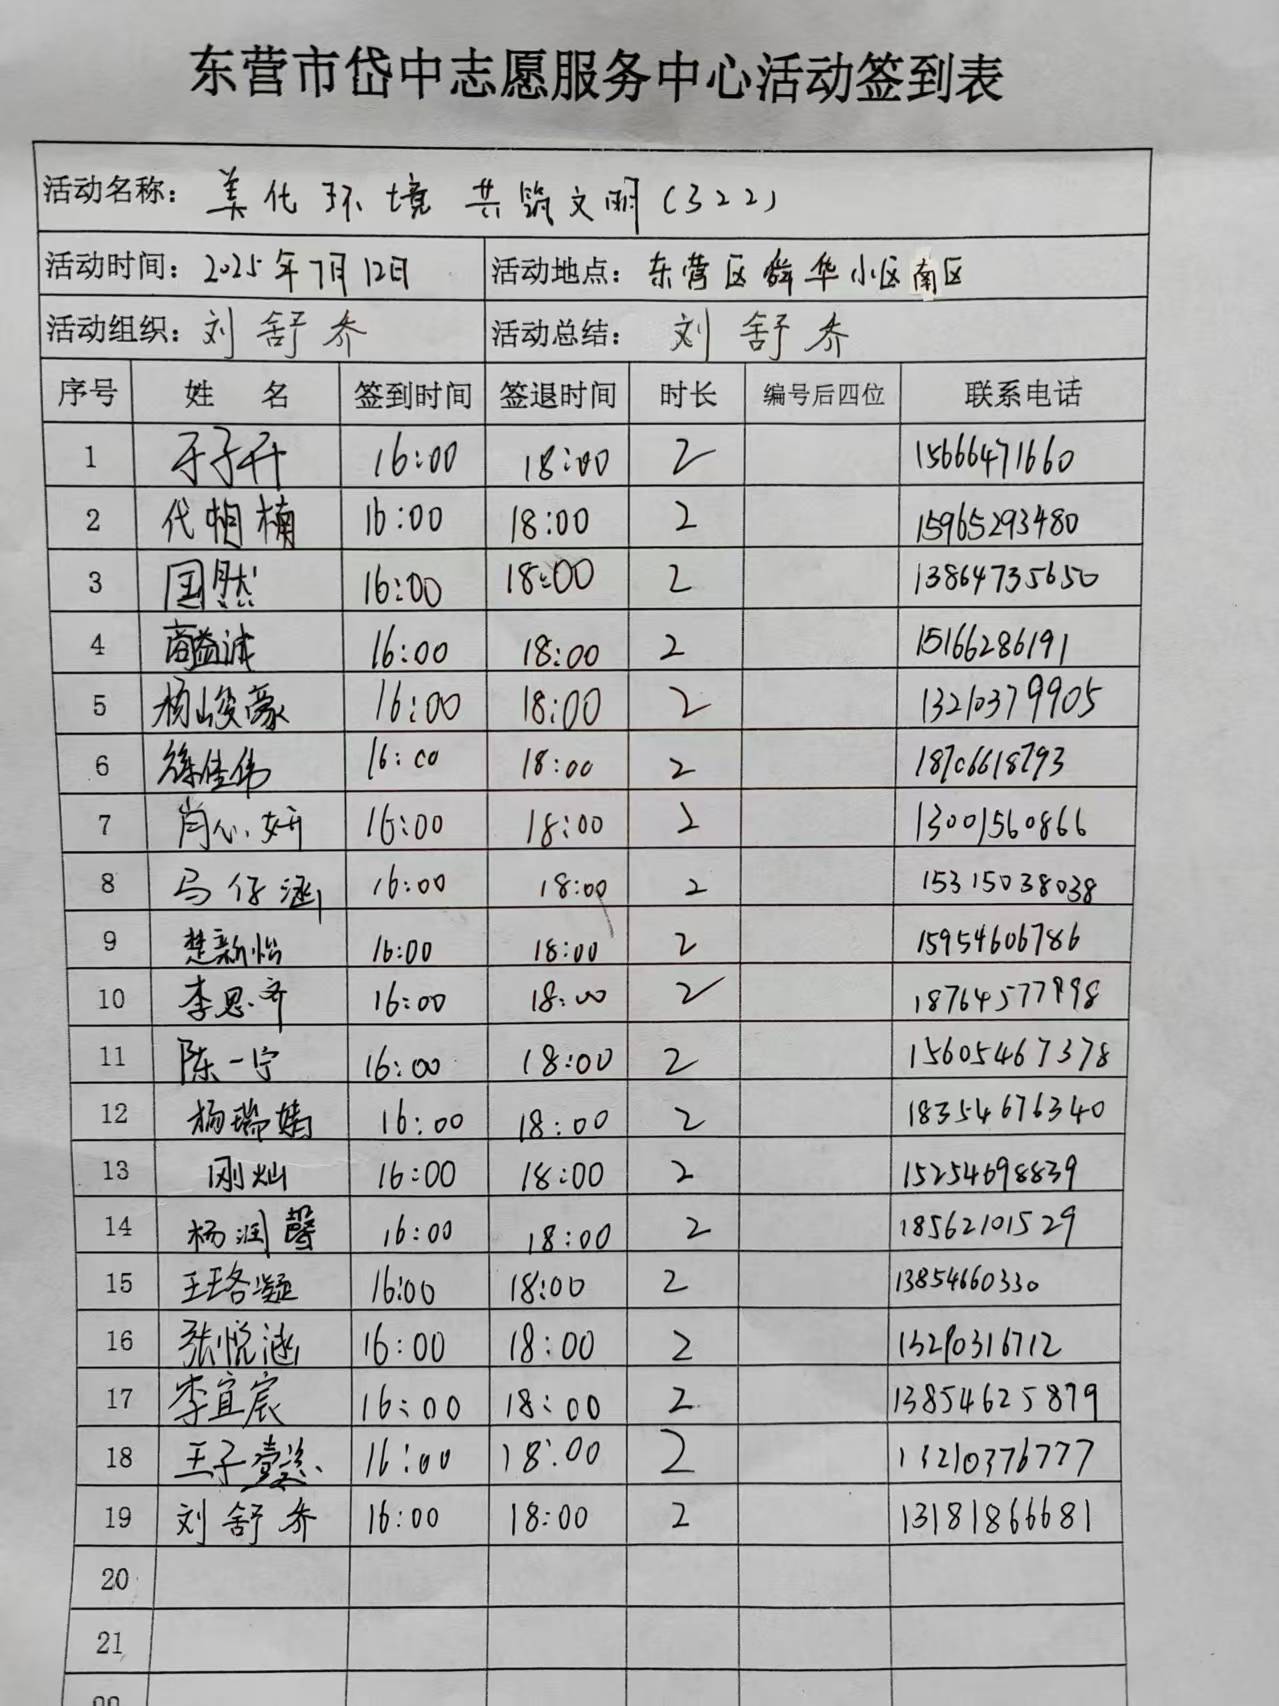 东营市岱中志愿服务中心活动签到表
活动名称: 美化环境 共筑文明(322)
活动时间: 2025年7月12日 活动地点: 东营区舜华小区南区
活动组织: 刘舒乔 活动总结: 刘舒乔
序号 姓 名 签到时间 签退时间 时长 编号后四位 联系电话
1 于子开 16:00 18:00 2 15666471660
2 代楠 16:00 18:00 2 15965293480
3 国然 16:00 18:00 2 13864735650
4 商益诚 16:00 18:00 2 15166286191
5 杨峻豪 16:00 18:00 2 13210379905
6 徐佳伟 16:00 18:00 2 18706618793
7 肖心妍 16:00 18:00 2 13001560866
8 马仔涵 16:00 18:00 2 15315038038
9 楚新怡 16:00 18:00 2 15954606786
10 李思齐 16:00 18:00 2 18764577998
11 陈一宁 16:00 18:00 2 15605467378
12 杨瑞婧 16:00 18:00 2 18354676340
13 刚灿 16:00 18:00 2 15254698839
14 杨润馨 16:00 18:00 2 18562101529
15 王珞凝 16:00 18:00 2 13854660330
16 张悦涵 16:00 18:00 2 13290316712
17 李宜宸 16:00 18:00 2 13854625879
18 王子 16:00 18:00 2 13210376777
19 刘舒乔 16:00 18:00 2 13181866681
20
21